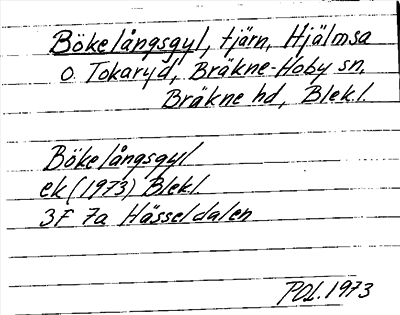 Bökelångsgyl, tjärn, Hjälmsa
o. Tokaryd, Bräkne-Hoby sn,
Bräkne hd, Blekl.
Bökelångsgyl
ek (1973) Blekl.
3F 7a Hässeldalen
POL. 1973